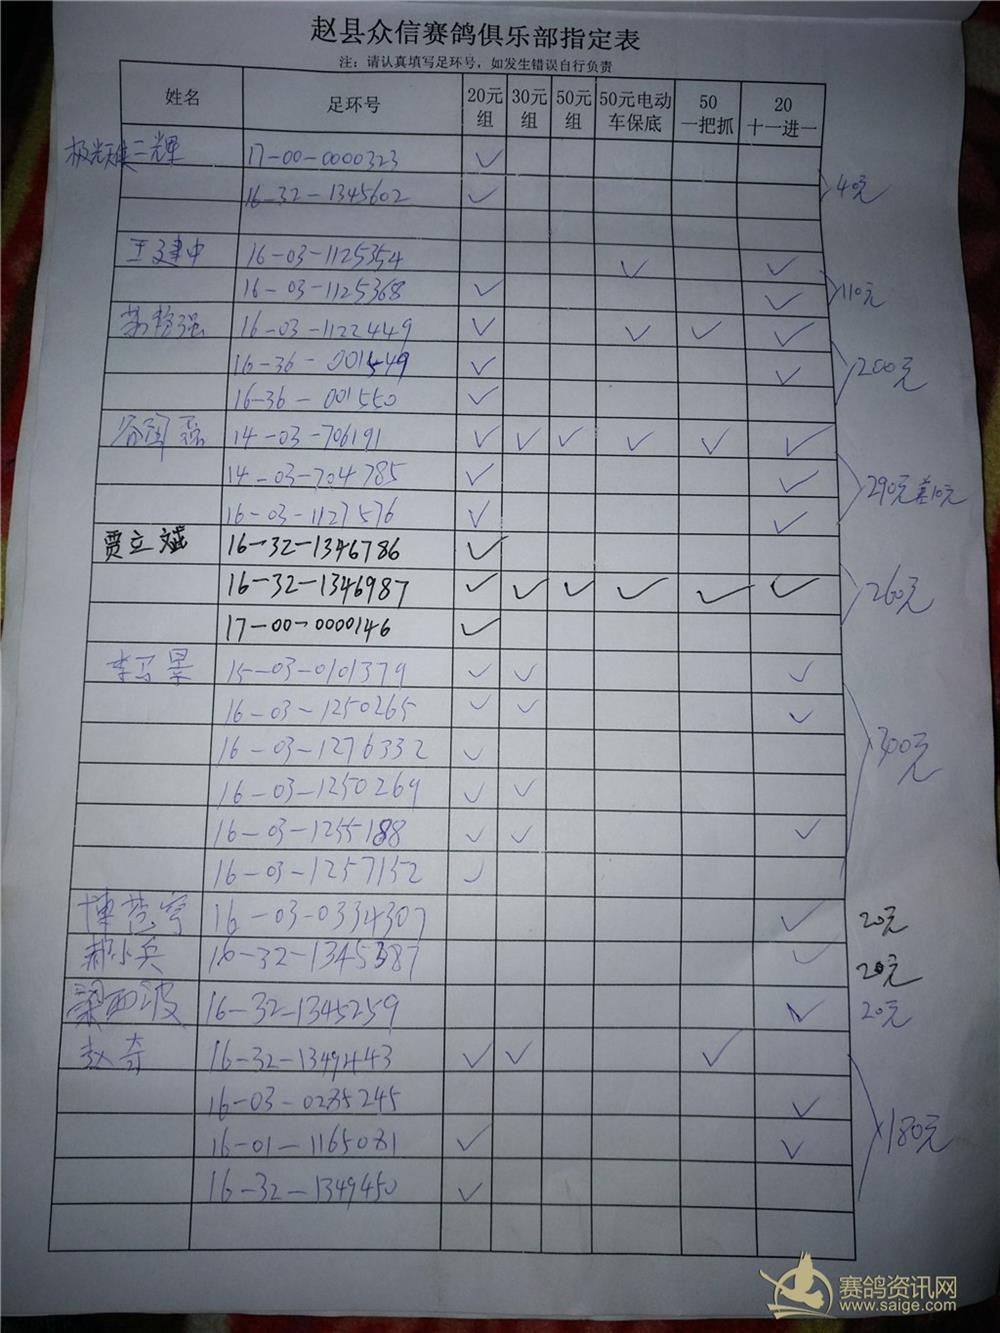 赵县众信赛鸽俱乐部指定表
注：请认真填写足环号，如发生错误自行负责
姓名 足环号 20元组 30元组 50元组 50元电动车保底 50一把抓 20十一进一
17-00-0000323 ✓
16-32-1345602 ✓ 40元
王建中 16-03-1125354 ✓ ✓
16-03-1125368 ✓ ✓ 110元
16-03-1122449 ✓ ✓ ✓ ✓
16-36-001549 ✓ ✓ 200元
16-36-001550 ✓
14-03-706191 ✓ ✓ ✓ ✓ ✓ ✓
14-03-704785 ✓ ✓ 290元差10元
16-03-1127576 ✓ ✓
贾立斌 16-32-1346786 ✓
16-32-1346987 ✓ ✓ ✓ ✓ ✓ ✓ 260元
17-00-0000146 ✓
15-03-0101379 ✓ ✓ ✓
16-03-1250265 ✓ ✓ ✓
16-03-1276332 ✓ 300元
16-03-1250269 ✓ ✓
16-03-1255188 ✓ ✓ ✓
16-03-1257152 ✓
16-03-0334307 ✓ 20元
郝小兵 16-32-1345387 ✓ 20元
梁西波 16-32-1345259 ✓ 20元
赵奇 16-32-1349443 ✓ ✓ ✓
16-03-0285245 ✓
16-01-1165081 ✓ ✓ 180元
16-32-1349450 ✓
赛鸽资讯网
www.saige.com